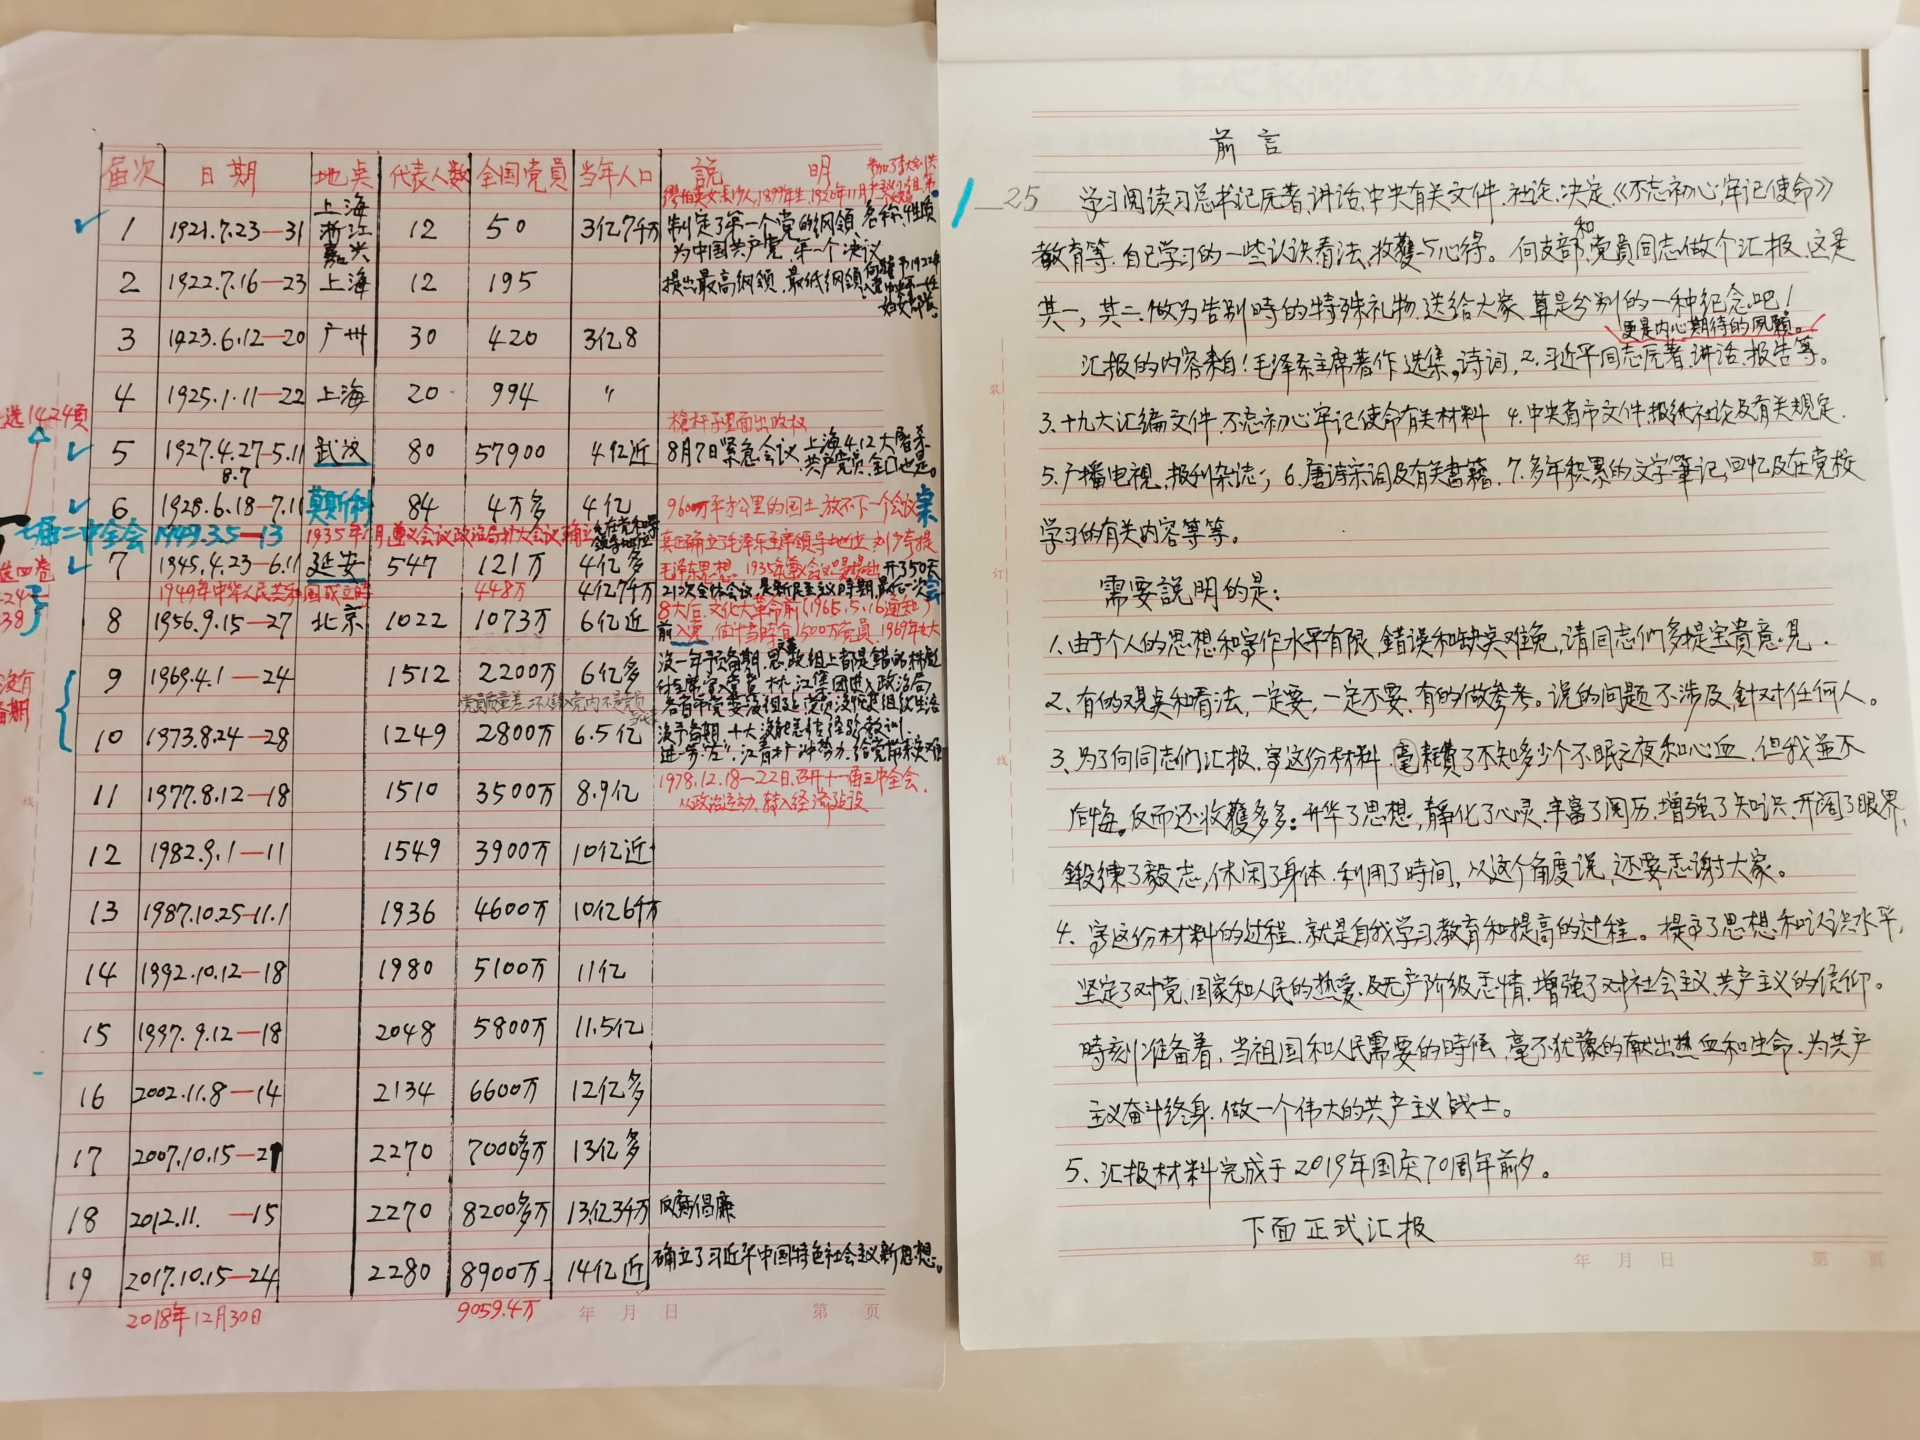 届次 日期 地点 代表人数 全国党员 当年人口 說明
1 1921.7.23—31 上海 浙江 嘉兴 12 50 3亿7千万 制定了第一个党的纲领、名称、性质
为中国共产党,第一个决议
2 1922.7.16—23 上海 12 195 提出最高纲领、最低纲领
3 1923.6.12—20 广州 30 420 3亿8
4 1925.1.11—22 上海 20 994 〃
槍杆子里面出政权
5 1927.4.27-5.11 武汉 80 57900 4亿近 8月7日紧急会议,上海4.12大屠杀
8.7 共产党员
6 1928.6.18—7.11 莫斯科 84 4万多 4亿 960万平方公里的国土,放不下一个会议
七届二中全会 1949.3.5—13 1935年1月遵义会议政治局扩大会议确立
真正确立了毛泽东主席领导地位
7 1945.4.23—6.11 延安 547 121万 4亿多 毛泽东思想。1935年遵义会议 开了50天
1949年中华人民共和国成立時 448万 4亿7千万 21次全体会议,是新民主主义時期,最后一次
8 1956.9.15—27 北京 1022 1073万 6亿近 8大后,文化大革命前(1966.5.16通知)
前入党 估计当時有1500万党员,1969年九大
9 1969.4.1—24 1512 2200万 6亿多 没一年予备期
10 1973.8.24—28 1249 2800万 6.5亿 没予备期,十大没能总结经验教训
进一步“左”
11 1977.8.12—18 1510 3500万 8.9亿 1978.12.18—22日,召开十一届三中全会,
从政治运动,转入经济建设
12 1982.9.1—11 1549 3900万 10亿近
13 1987.10.25—11.1 1936 4600万 10亿6千万
14 1992.10.12—18 1980 5100万 11亿
15 1997.9.12—18 2048 5800万 11.5亿
16 2002.11.8—14 2134 6600万 12亿多
17 2007.10.15—21 2270 7000多万 13亿多
18 2012.11. —15 2270 8200多万 13亿34万 反腐倡廉
19 2017.10.15—24 2280 8900万 14亿近 确立了习近平中国特色社会主义新思想。
2018年12月30日 9059.4万 年 月 日 第 页
前言
25 学习阅读习总书记原著、讲话、中央有关文件、社论、决定、《不忘初心,牢记使命》
教育等,自已学习的一些认识看法、收獲与心得。向支部和党員同志做个汇报,这是
其一,其二,做为告别時的特殊礼物,送给大家,算是分别的一种纪念吧!
更是内心期待的夙願。
汇报的内容来自1毛泽东主席著作、选集,诗词,2.习近平同志原著、讲话、报告等。
3、十九大汇编文件、不忘初心牢记使命有关材料 4.中央省市文件、报纸社论及有关規定.
5.广播电视、报刊杂誌; 6.唐诗宋词及有关書籍. 7.多年积累的文字筆记、回忆及在党校
学习的有关内容等等。
需要説明的是:
1、由于个人的思想和写作水平有限,錯误和缺点难免,请同志们多提宝貴意見.
2、有的观点和看法,一定要,一定不要,有的做参考。说的问题不涉及、針对任何人。
3、为了向同志们汇报,写这份材料,毫耗費了不知多少个不眠之夜和心血,但我並不
后悔。反而还收獲多多:升华了思想,静化了心灵,丰富了阅历,增强了知识,开阔了眼界,
鍛鍊了毅志,休闲了身体,利用了時间,从这个角度说,还要感谢大家。
4、写这份材料的过程,就是自我学习教育和提高的过程。提高了思想和认识水平,
坚定了对党、国家和人民的热爱及无产阶级感情,增强了对社会主义、共产主义的信仰。
時刻准备着,当祖国和人民需要的時候,毫不犹豫的献出热血和生命,为共产
主义奋斗终身,做一个伟大的共产主义战士。
5、汇报材料完成于2019年国庆70周年前夕。
下面正式汇报
年 月 日 第 頁